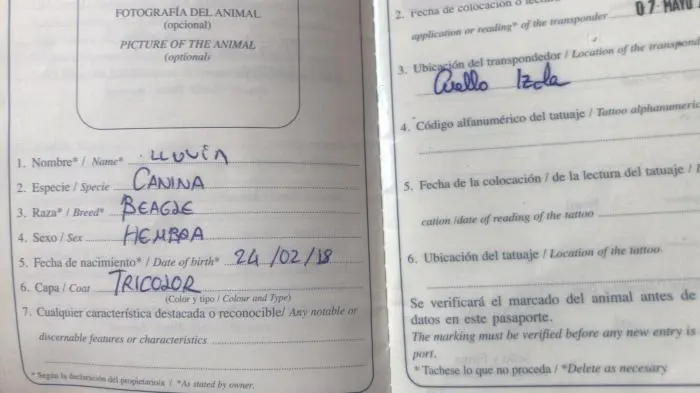 FOTOGRAFÍA DEL ANIMAL
(opcional)
PICTURE OF THE ANIMAL
(optional)
1. Nombre* / Name* LLUVIA
2. Especie / Specie CANINA
3. Raza* / Breed* BEAGLE
4. Sexo / Sex HEMBRA
5. Fecha de nacimiento* / Date of birth* 24/02/18
6. Capa / Coat TRICOLOR
(Color y tipo / Colour and Type)
7. Cualquier característica destacada o reconocible/ Any notable or
discernable features or characteristics
* Según la declaración del propietario/a / *As stated by owner.
2. Fecha de colocación o
application or reading* of the transponder 07 MAYO
3. Ubicación del transpondedor / Location of the transpond
Cuello Izda
4. Código alfanumérico del tatuaje / Tattoo alphanumeric
5. Fecha de la colocación / de la lectura del tatuaje /
cation /date of reading of the tattoo
6. Ubicación del tatuaje / Location of the tattoo
Se verificará el marcado del animal antes de
datos en este pasaporte.
The marking must be verified before any new entry is
port.
* Tachese lo que no proceda / *Delete as necesary